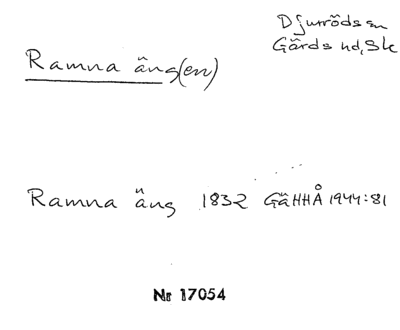 Djurröds sn
Gärds hd, Sk
Ramna äng(en)
Ramna äng 1832 GäHHÅ 1944:81
Nr 17054